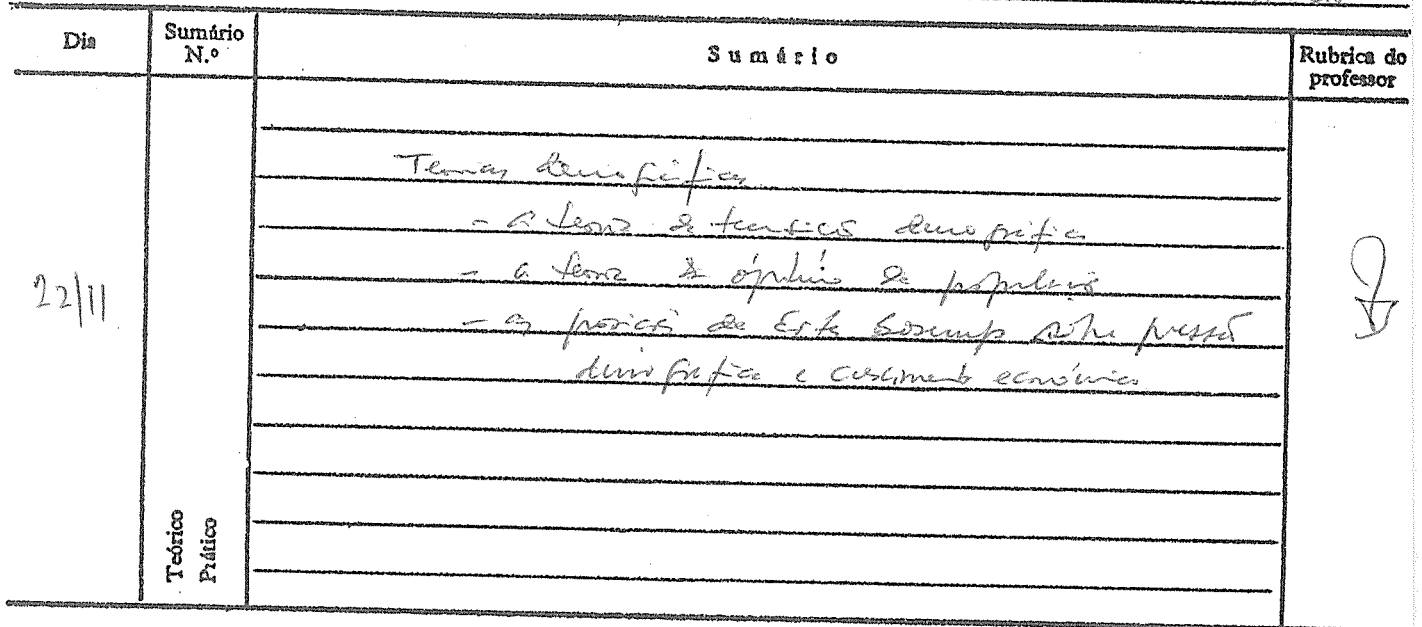 Dia
Sumário N.º
Sumário
Rubrica do professor
22/11
Teorias demográficas
- a teoria da transição demográfica
- a teoria do óptimo de população
- as posições de Ester Boserup sobre pressão
demográfica e crescimento económico
Teórico
Prático